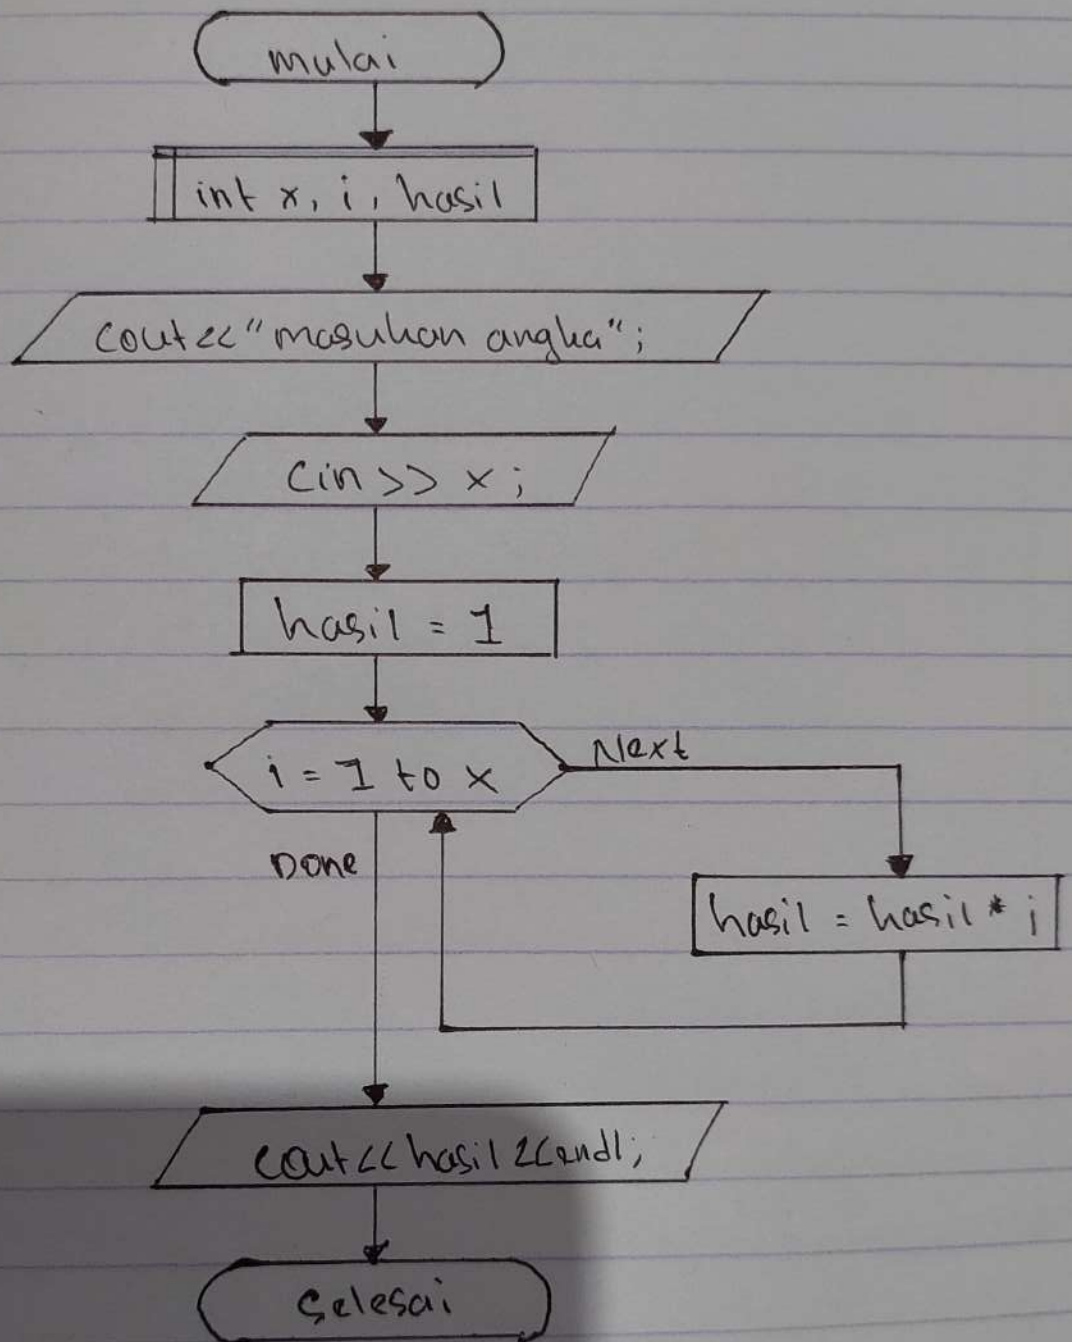 mulai
int x, i, hasil
cout<<"masukan angka";
Cin >> x ;
hasil = 1
i = 1 to x
Next
Done
hasil = hasil * i
cout<<hasil<<endl;
Selesai